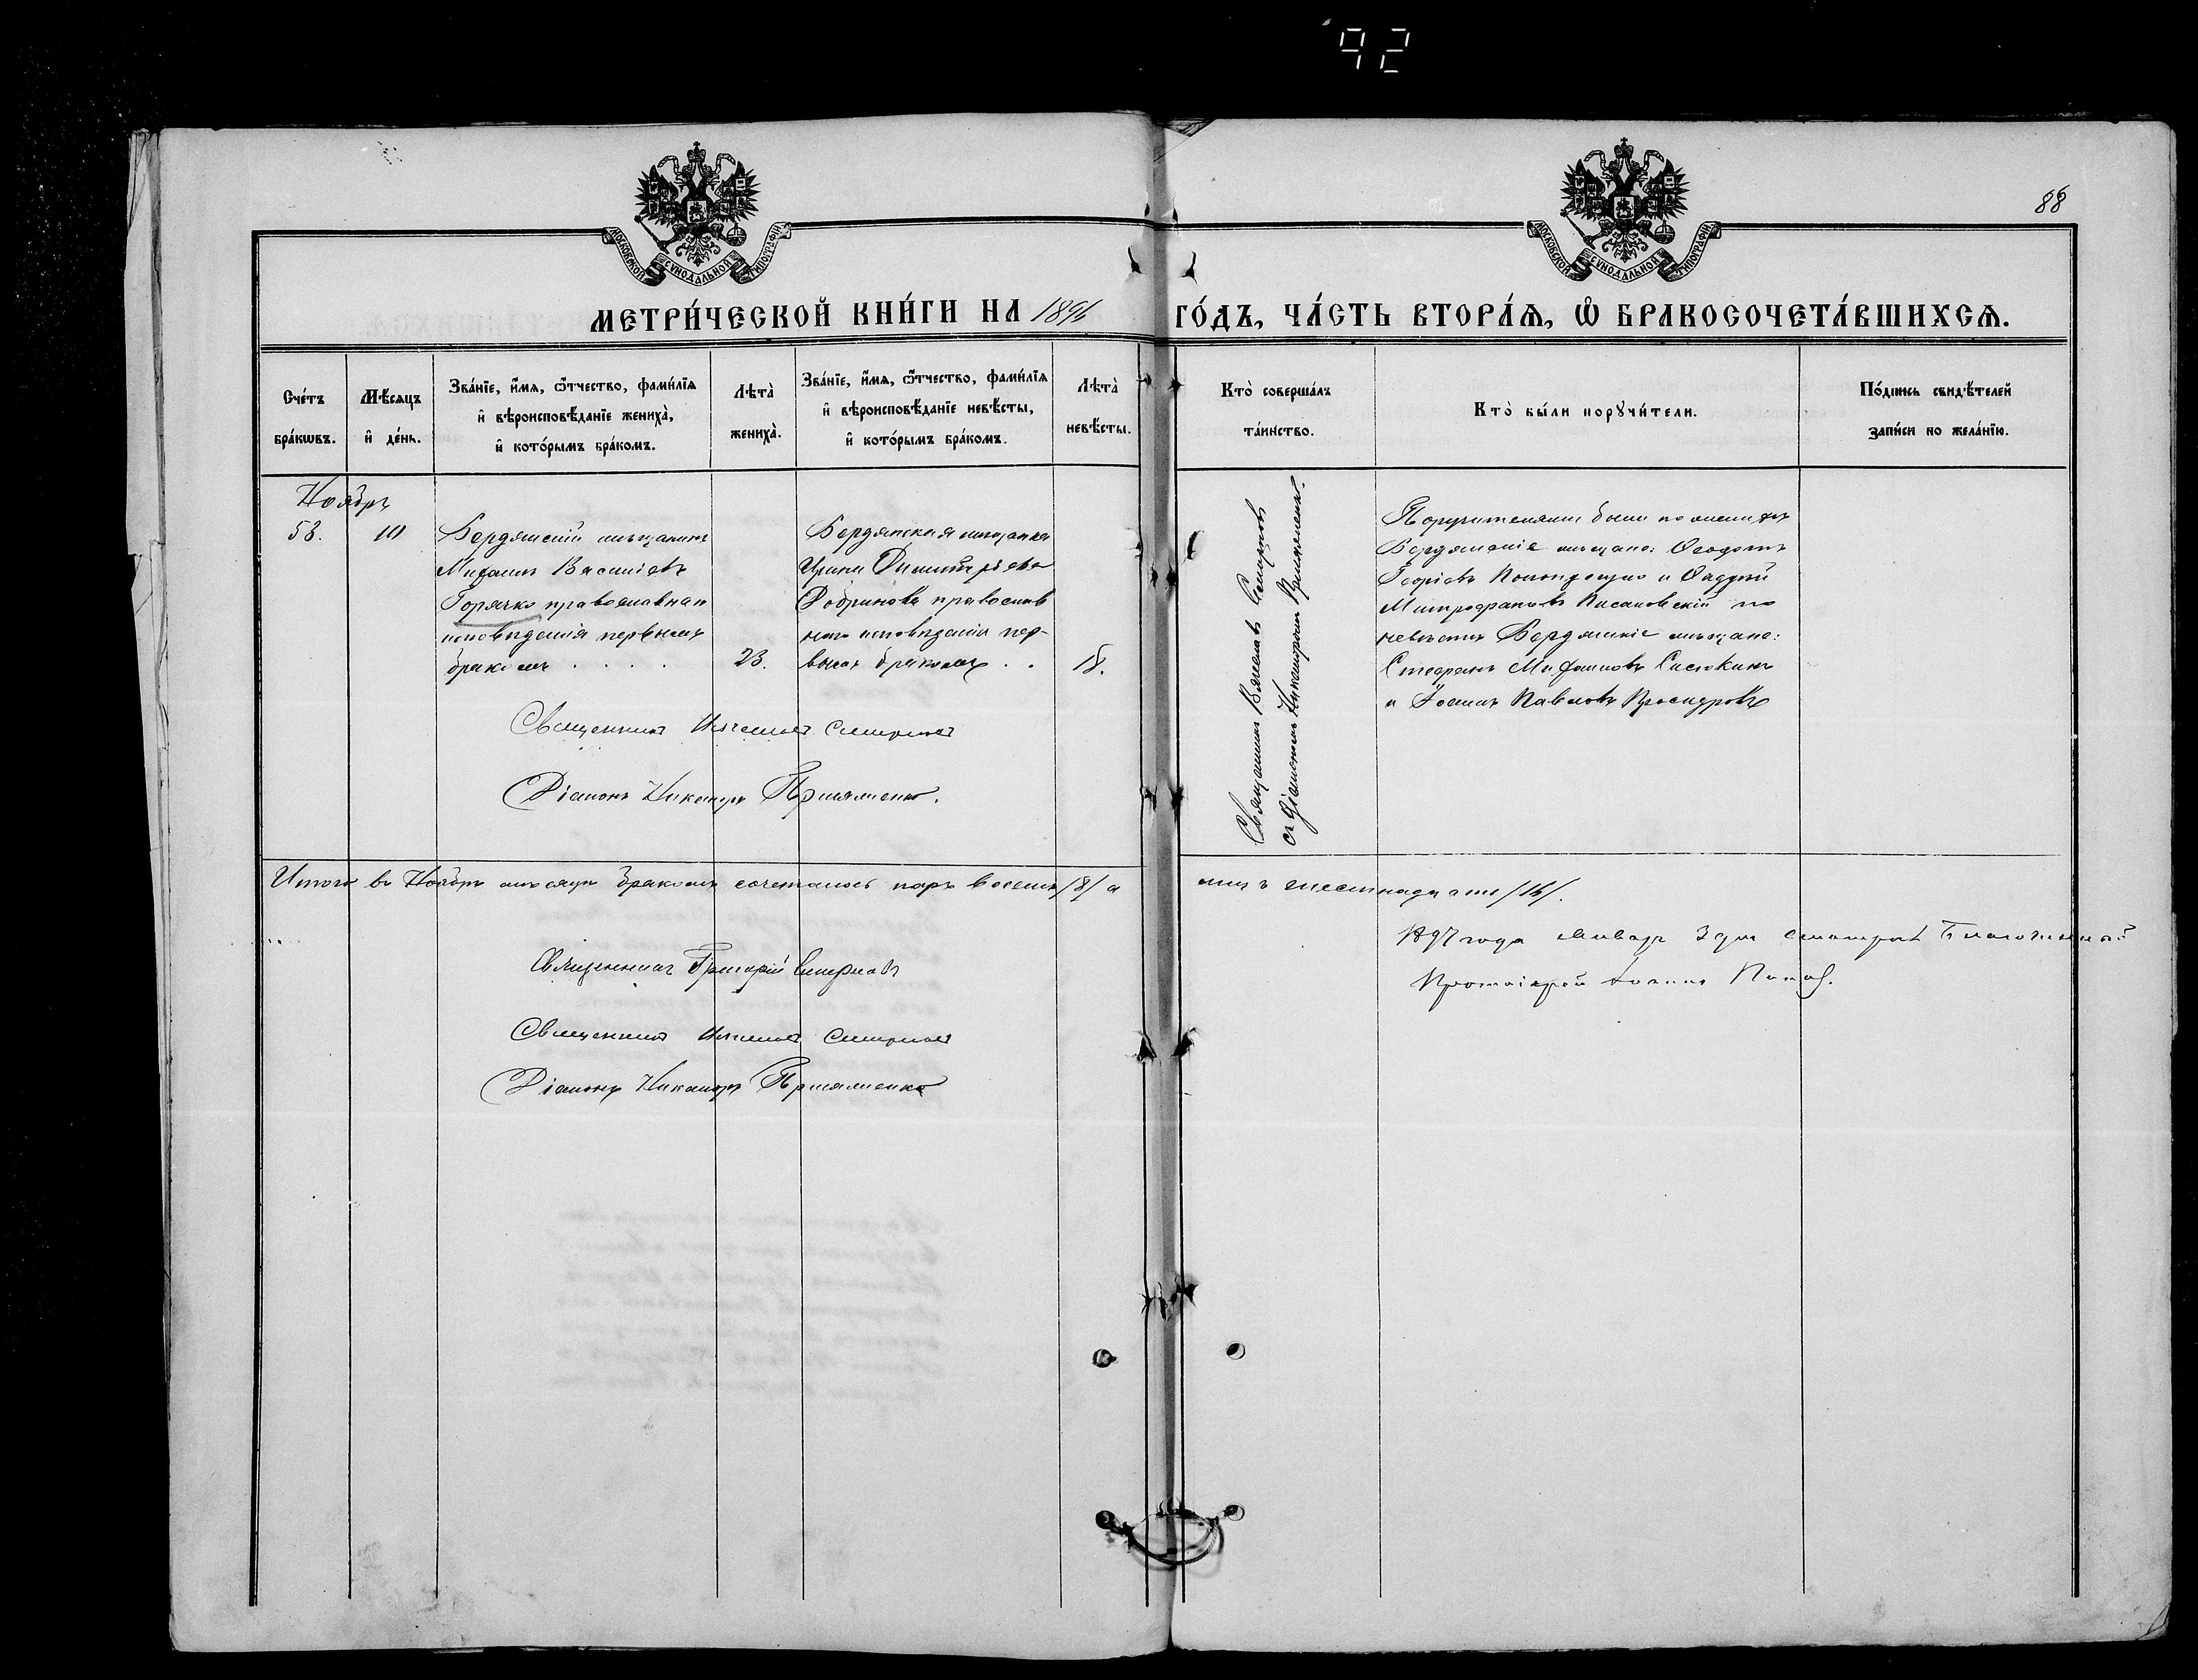 92
88
МОСКОВСКОЙ СѴНОДАЛЬНОЙ ТИПОГРАФІИ
МОСКОВСКОЙ СѴНОДАЛЬНОЙ ТИПОГРАФІИ
МЕТРИ́ЧЕСКОЙ КНИ́ГИ НА 1896 ГО́ДЪ, ЧА́СТЬ ВТОРА́Ѧ, Ѽ БРАКОСОЧЕТА́ВШИХСѦ.
Сче́тъ бра́кѡвъ.
Мѣ́сяцъ и҆ де́нь.
Зва́нїе, и҆́мѧ, ѻ҆́тчество, фами́лїѧ и҆ вѣроисповѣ́данїе жениха̀, и҆ кото́рымъ бра́комъ.
Лѣта̀ жениха̀.
Зва́нїе, и҆́мѧ, ѻ҆́тчество, фами́лїѧ и҆ вѣроисповѣ́данїе невѣ́сты, и҆ кото́рымъ бра́комъ.
Лѣта̀ невѣ́сты.
Кто̀ соверша́лъ та́инство.
Кто̀ бы́ли порꙋчи́тели.
По́дпись свидѣ́телей за́писи по жела́нїю.
Ноябрь
53. 10
Бердянскій мѣщанинъ
Михаилъ Васильевъ
Горячко православнаго
исповѣданія первымъ
бракомъ . . . .
23.
Бердянская мѣщанка
Ирина Димитріева
Добринова православ
наго исповѣданія пер-
вымъ бракомъ . .
18.
Священникъ Вячеславъ Смирновъ
съ діакономъ Никаноромъ
Поручителями были по женихѣ
Бердянскіе мѣщане: Ѳеодотъ
Георгіевъ и Ѳаддей
Митрофановъ Писановскій по
невѣстѣ Бердянскіе мѣщане:
Стефанъ Михаиловъ Сисюкинъ
и Іоаннъ Павловъ Проскуровъ
Священникъ Вячеславъ Смирновъ
Діаконъ Никаноръ
Итого въ Ноябрѣ мѣсяцѣ бракомъ сочеталось паръ восемь /8/ а лицъ шестнадцать /16/.
1897 года Январь 3 дня смотрѣлъ Благочинный
Протоіерей Іоаннъ Попов.
Священникъ Григорій Смирновъ
Священникъ Вячеславъ Смирновъ
Діаконъ Никаноръ